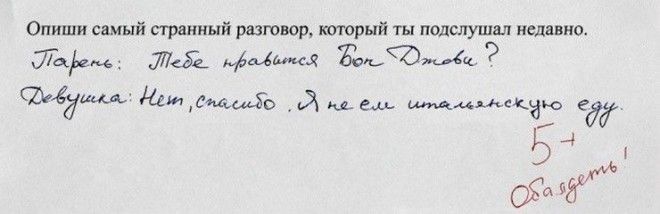 Опиши самый странный разговор, который ты подслушал недавно.
Парень: Тебе нравится Бон Джови?
Девушка: Нет, спасибо. Я не ем итальянскую еду.
5+
Обалдеть!